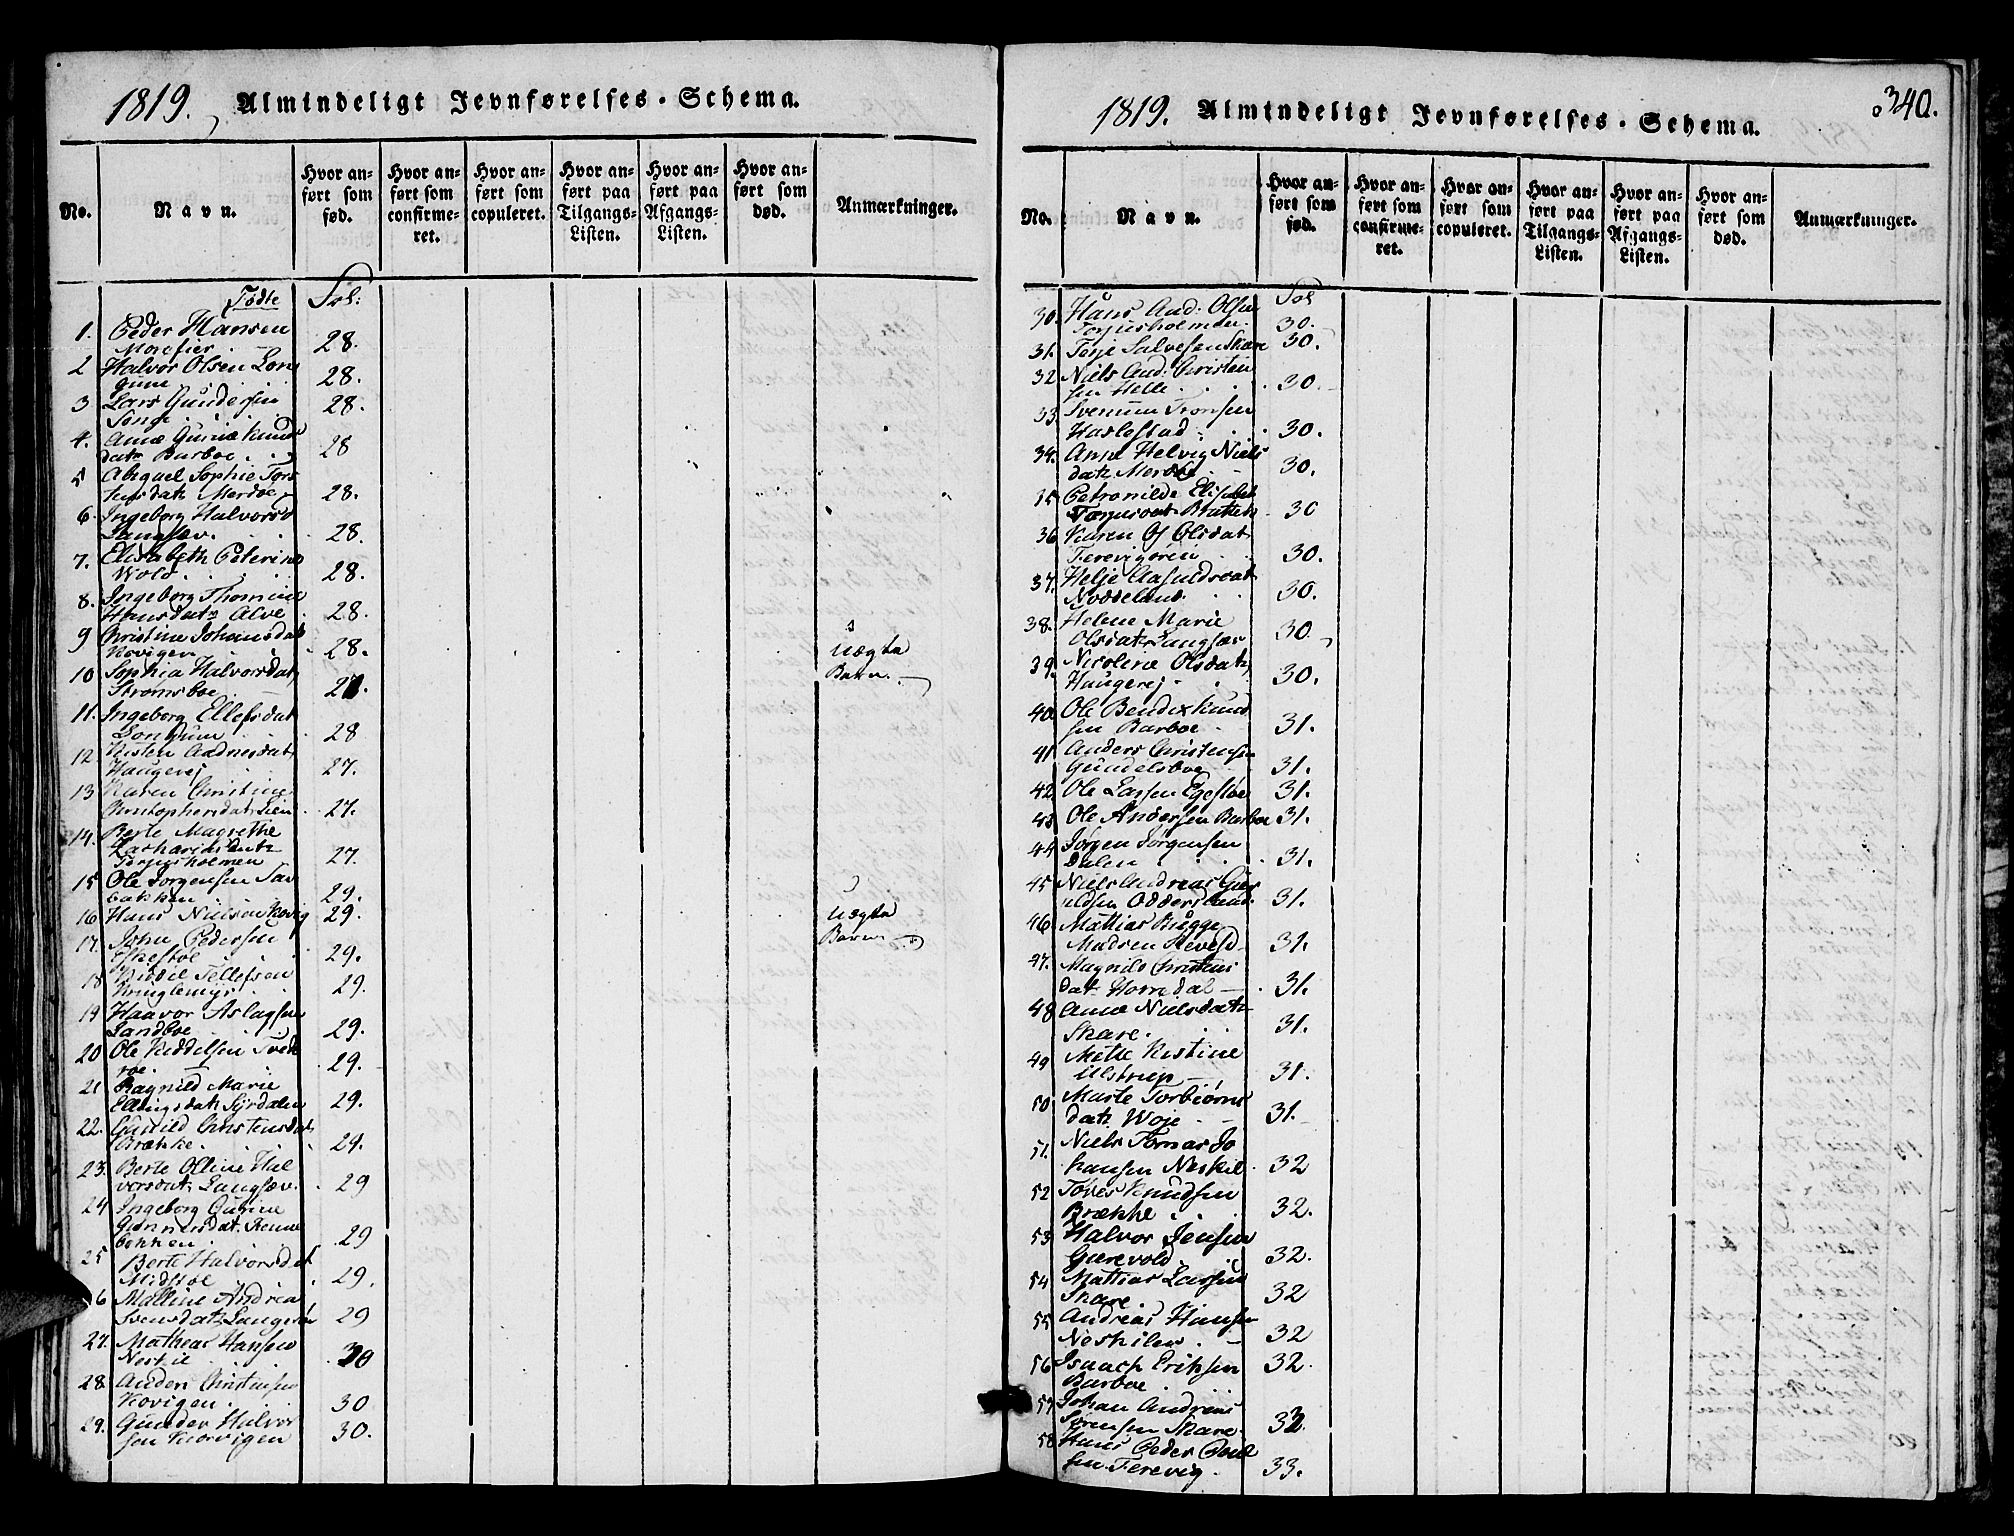 1819. Almindeligt Jevnførelses-Schema.
No.
Navn.
Hvor anført som fød.
Hvor anført som confirmeret.
Hvor anført som copuleret.
Hvor anført paa Tilgangs-Listen.
Hvor anført paa Afgangs-Listen.
Hvor anført som død.
Anmærkninger.
Fødte Fol:
1. Peder Hansen
28.
2 Halvor Olsen Lon
gum 28.
3 Lars Gundersen
Songe 28.
4. Anne Gurine Knuds
datr Barboe 28
5 Abigael Sophie Ters
datr Merdøe 28.
6. Ingeborg Halvorsd
Langsæv. 28.
7. Elisabeth Peterine
Wold 28.
8. Ingeborg Thomine
Hansdatr Alve 28.
9 Christine Johansdat
Kovigen 28.
Uægte
10 Sophia Halvorsdatr
Strømsboe 27.
Barn.
11. Ingeborg Ellefsdat
Longum 28
12. Kisten Aadnesdatr
Haugerej 27.
13 Karen Christine
Christophersdatr Lien 27.
14. Berte Magrethe
Zachariasdatr
Torjusholmen 27.
15 Ole Jørgensen Sav
bakken 29.
16 Hans Nielsen Kovig 29.
Uægte
17. John Pedersen
29.
Barn
18 Kiddil Tellefsen
Kringlemyr 29.
19 Haavor Aslagsen
Sandboe 29.
20 Ole Kiddelsen Tved
29.
21 Ragnild Marie
Ellingsdatr Syrdalen 29.
22. Gunild Christensdat
Brække 29.
23. Berte Olline Hal
vorsdatr Langsæv. 29
24 Ingeborg Gurine
Gunnersdat.
bakken 29
25 Berte Halvorsdat
29.
26 Malline Andrea
Svensdatr 29
27. Mathias Hansen
Neskil 30
28. Anders Christensen
Kovigen 30
29. Gunder Halvor
sen Kovigen 30.
340.
1819. Almindeligt Jevnførelses-Schema.
No.
Navn.
Hvor anført som fød.
Hvor anført som confirmeret.
Hvor anført som copuleret.
Hvor anført paa Tilgangs-Listen.
Hvor anført paa Afgangs-Listen.
Hvor anført som død.
Anmærkninger.
Fol
30. Hans And: Olsen
Torjusholmen 30.
31. Terje Salvesen Skare 30.
32 Niels And: Christen
sen Helle 30.
33.
Haslestad 30.
34. Anne Helvig Niels
datr Merdøe 30.
35. Petronilde Elisabet
30
36 Karen Olsdatr
30.
37. Helje Aasuldsdat
Nødeland 30.
38. Helene Marie
Olsdatr Langsæv 30
39. Nicoline Olsdatr
Haugerej 30.
40. Ole Bendix Knud
sen Barboe 31.
41 Anders Christensen
Gundelsboe 31.
42. Ole Larsen Egeståe 31.
43. Ole Andersen Barboe 31.
44 Jørgen Jørgensen
Dalen 31.
45 Niels Andreas Gun
uldsen 31.
46. Mattias Bugge
Madsen 31.
47. Magnild Christens
dat 31.
48 Anne Nielsdatr
Skare. 31.
49 Mette Kistine
Ulstrup 31.
50 Marte Torbiørns
datr Woje 31.
51. Niels Tomas Jo
hansen Neskil 32
52 Knudsen
Brække 32.
53. Halvor Jensen
Gurevold 32.
54 Mattias Larsen
Skare 32
55 Andreas Hansen
Neskilen 32
56 Isaach Eriksen 32.
Barboe
57 Johan Andreas
Sørensen Skare. 32.
58. Hans Peder
sen Terevig 33.